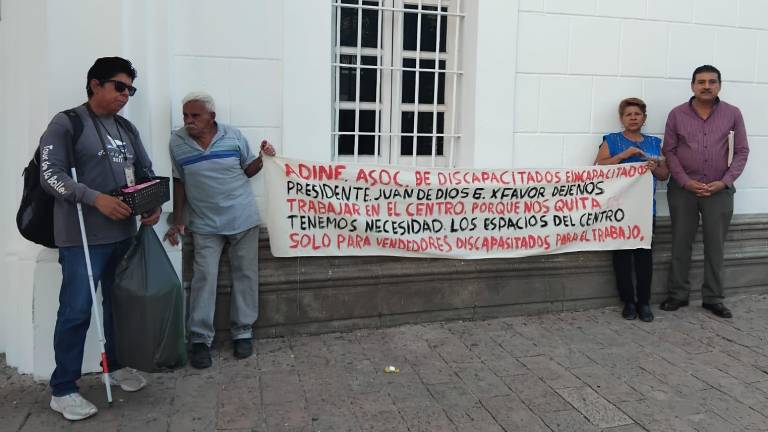 ADINF. ASOC. DE DISCAPACITADOS EINCAPACITADOS
PRESIDENTE. JUAN DE DIOS G. XFAVOR DEJENOS
TRABAJAR EN EL CENTRO, PORQUE NOS QUITA
TENEMOS NECESIDAD. LOS ESPACIOS DEL CENTRO
SOLO PARA VENDEDORES DISCAPASITADOS PARA EL TRABAJO.